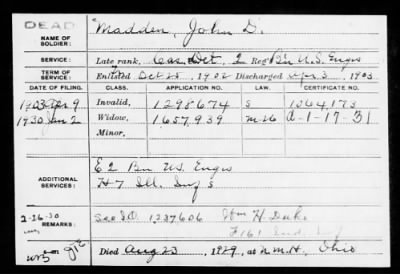 DEAD
NAME OF SOLDIER: Madden, John D.
SERVICE: Late rank, Cas. Det. 2 Reg't Bn U.S. Engrs
TERM OF SERVICE: Enlisted Oct 25, 1902 Discharged Apr 3, 1903
DATE OF FILING. CLASS. APPLICATION NO. LAW. CERTIFICATE NO.
1903 Apr 9 Invalid, 1298674 S 1064,173
1930 Jan 2 Widow, 1657,939 d-1-17-31
Minor,
ADDITIONAL SERVICES: E 2 Bn U.S. Engrs
H 7 Ill. Inf S
2-26-30 See S.O. 1237606 Wm H Duke
REMARKS: F 161 Ind. Inf
Died Aug 23, 1929, at N.M.H., Ohio